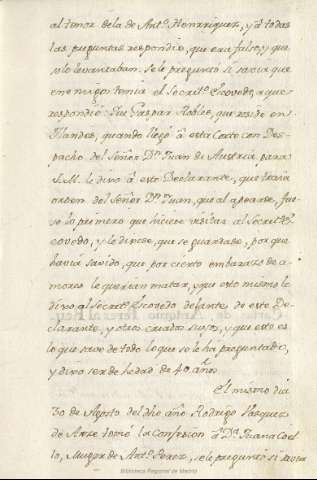 al tenor de la de Antº. Henrriquez, y â todas
las preguntas respondio, que era falso, y que
se lo levantaban. Se le preguntó si savia que
enemigos tenia el Secretº. Escovedo, a que
respondió: Que Gaspar Robles, que reside en
Flandes, quando llegó â esta Corte con Des-
pacho del Señor Dn. Juan de Austria para
S. M. le dixo â este Declarante, que traîa
orden del Señor Dn. Juan, que al apearse, fue-
se lo primero que hiciese visitar al Secretº. Es-
covedo, y le dixese, que se guardase, porque
havia savido, que por cierto embarazo de a-
mores le querian matar, y que esto mismo le
dixo al Secretº. Escovedo delante de este De-
clarante, y otros criados suyos, y que esto es
lo que save de todo lo que se le ha preguntado,
y dixo ser de hedad de 40 años.
El mismo dia
30 de Agosto del dho año Rodrigo Vazquez
de Arze tomó la Confesion â Dª. Juana Coe-
llo, Muger de Antº. Perez, se le preguntó si
Biblioteca Regional de Madrid